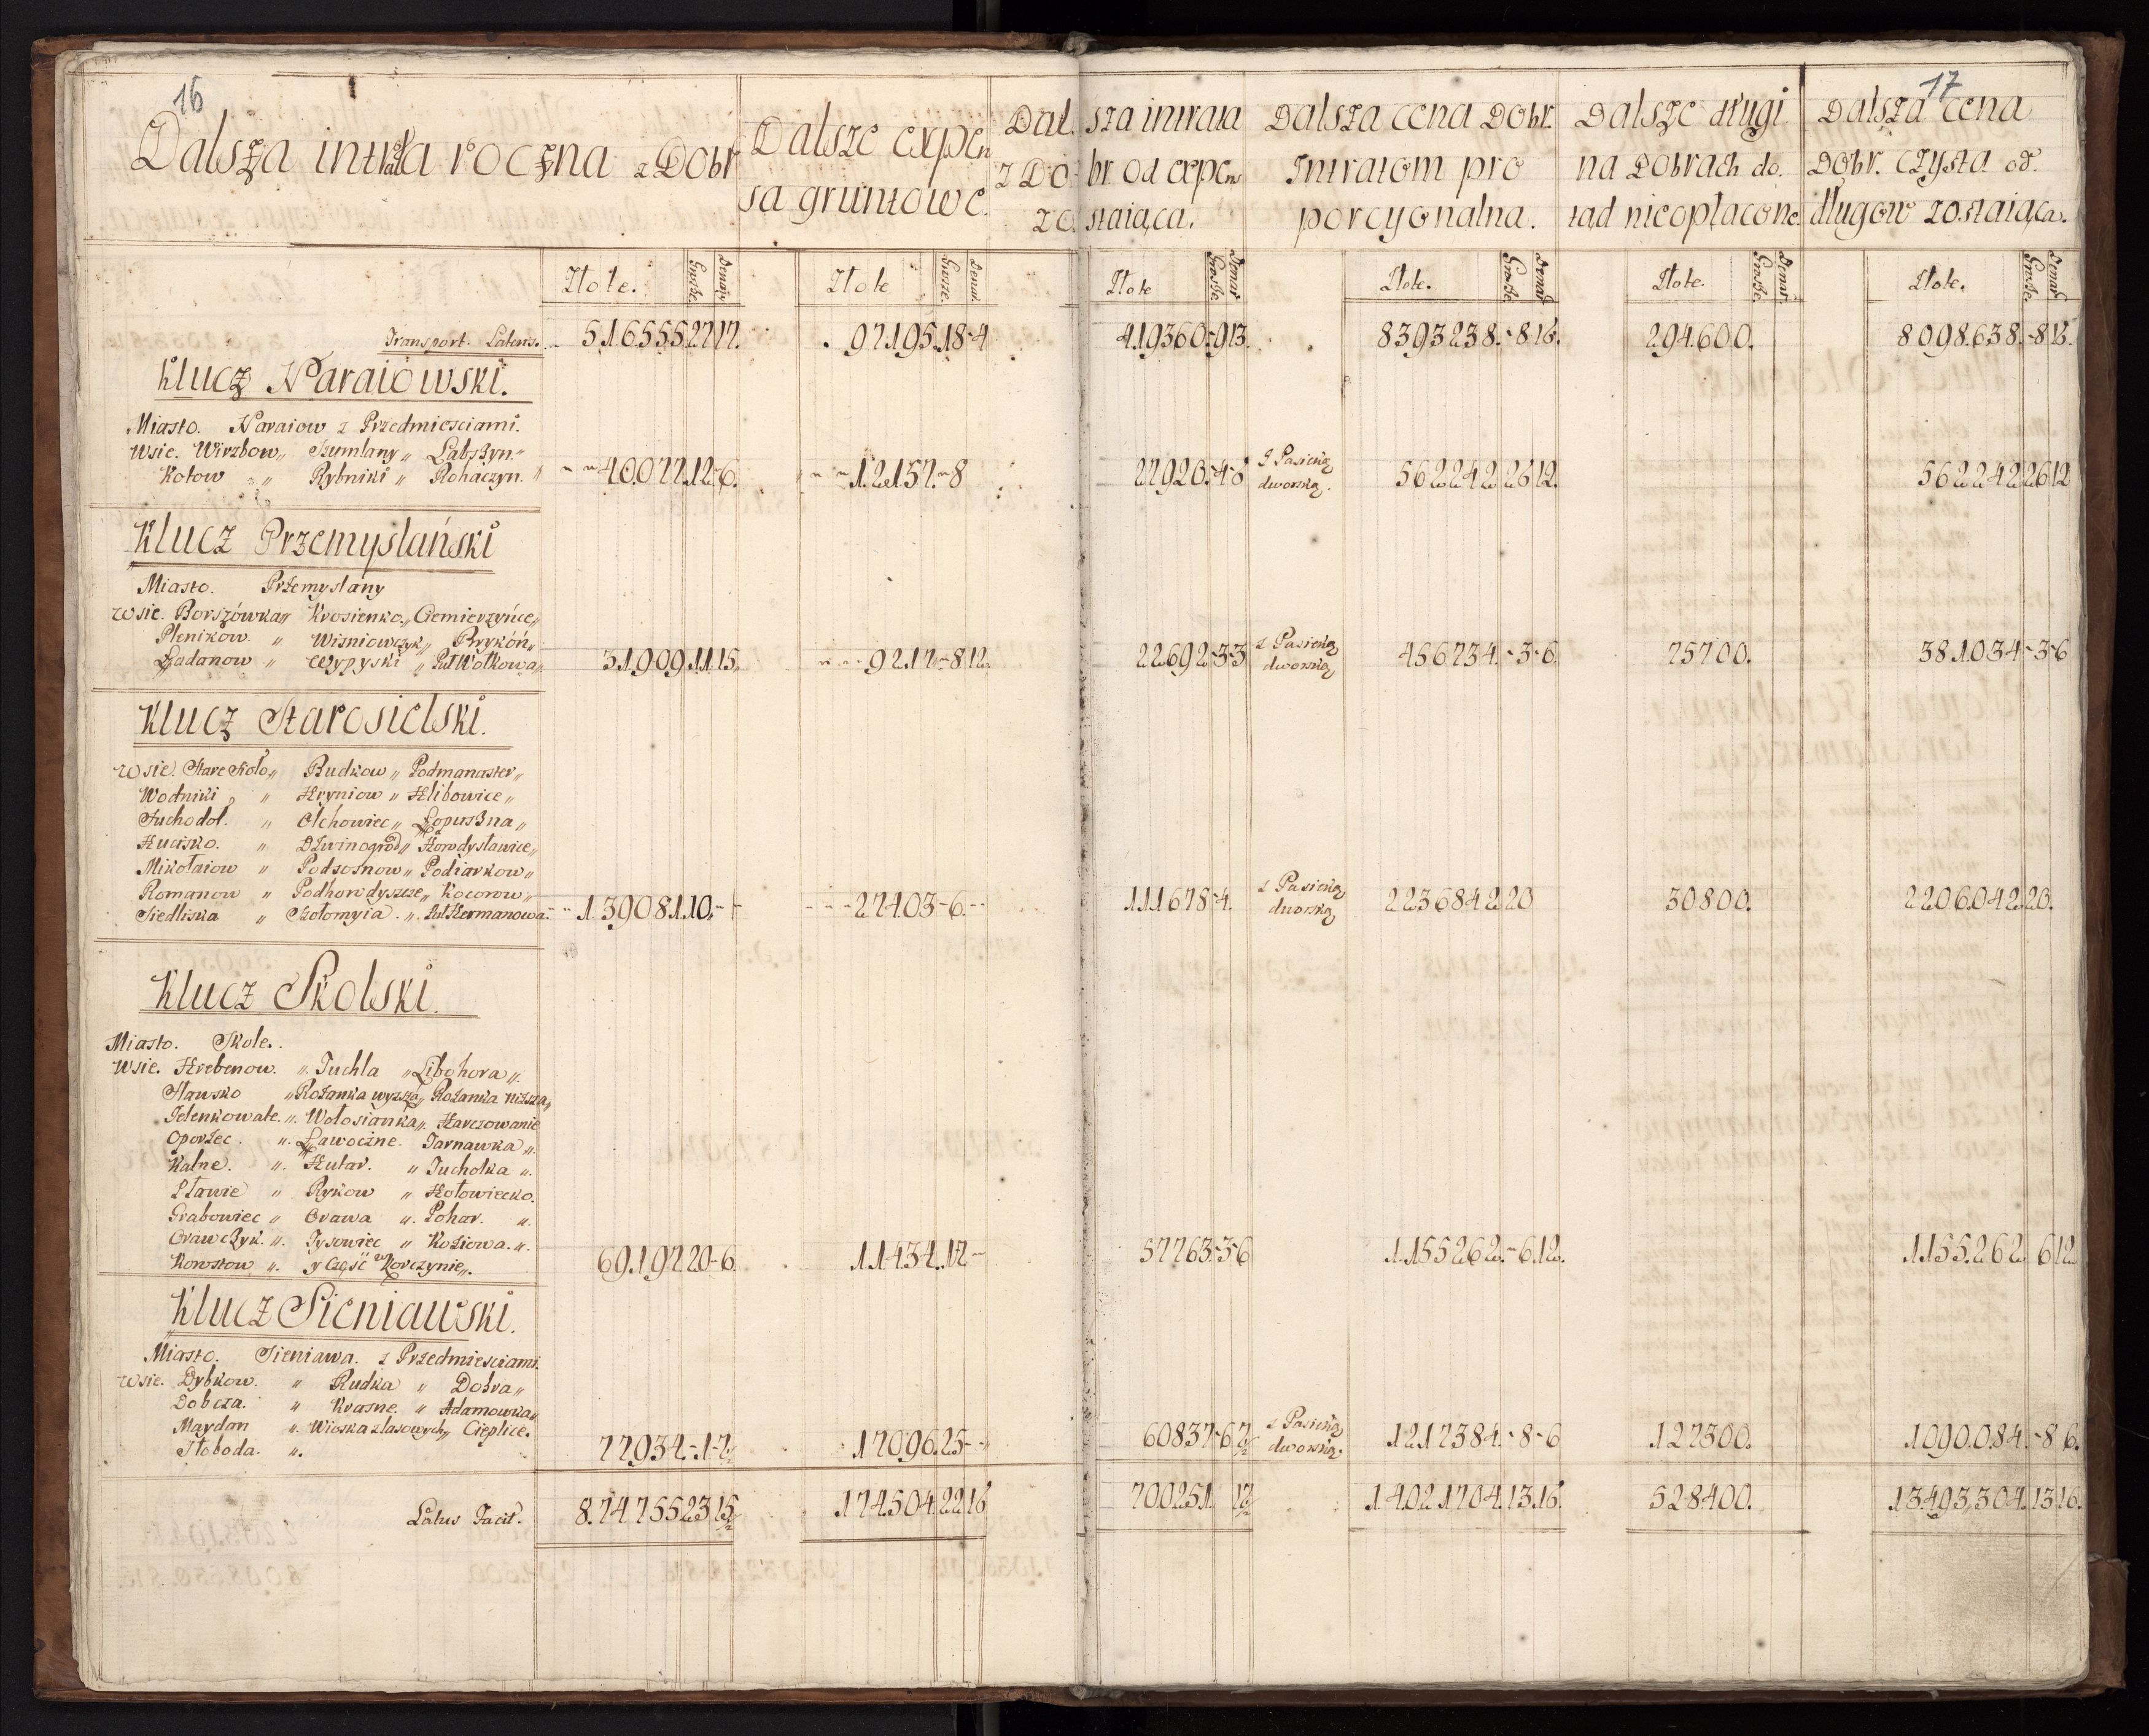 16
17
Dalsza intrata roczna z Dobr
Dalsze expen
sa gruntowe.
Dalsza intrata
z Dobr od expens
zostaiąca.
Dalsza cena Dobr.
Intratom pro
porcyonalna.
Dalsze długi
na Dobrach do.
tąd nieopłacone.
Dalsza cena
Dobr. czysta od.
długow zostaiąca.
Złote. Grosze. Denary Złote Grosze. Denar. Złote Grosze. Denar. Złote. Grosze. Denar. Złote. Grosze. Denar. Złote. Grosze. Denar.
Transport. Latens. 516555 27 17. 97195. 18 - 4 419360 - 9 13. 8393238. - 8 16. 294.600. 8098.638. - 8 16.
Klucz Naraiowski.
Miasto. Naraiow z Przedmiesciami.
Wsie. Wirzbow „ Szumlany „ Labszyn. „
Kotow „ Rybniki „ Rohaczyn. „ 40077. 12 - 6. 12157. - 8 27920. - 4 - 6 z Pasieką dworską. 562242 26 12. 562242 26 12
Klucz Przemyslański
Miasto. Przemyslany
Wsie. Borszówka „ Krosienko. „ Ciemierzyńce „
Plenikow. „ Wisniowczyk „ Brykóń „
Ładanow „ Wypyski „ Puł Wołkowa „ 31909. 11. 15. 9217 - 8. 12. 22692 - 3 - 3 z Pasieką dworską 456734. - 3 - 6. 75700. 381034 - 3 - 6
Klucz Starosielski.
Wsie. Stare Sioło „ Budkow „ Podmanaster „
Wodniki „ Hryniow „ Hlibowice „
Suchodoł. „ Olchowiec „ Łopuszna „
Hucisko. „ Dzwinogrod „ Horodysławice „
Mikołaiow „ Podsosnow „ Podiarkow „
Romanow „ Podhorodyszcze „ Kocorow „
Siedliska „ Szołomyia. „ Puł Hermanowa. 139081. 10. - 27403 - 6. - 111678 - 4. z Pasieką dworską 2236842 20 30800. 2206042. 20.
Klucz Skolski.
Miasto. Skole.
Wsie. Hrebenow. „ Tuchla „ Libohora „
Sławsko „ Rożanka wyzsza „ Rożanka niższa „
Jelenkowate. „ Wołosianka „ Harczowanie
Oporzec. „ Ławoczne. Tarnawka „
Kalne. „ Hutar. „ Tucholka „
Pławie „ Rykow „ Hołowiecko.
Grabowiec „ Orawa „ Pohar. „
Orawczyk. „ Tysowiec „ Koziowa. „
Korostow „ y Część w Korczynie „ 69197 20 - 6. 11434. 17 - 57763. - 3 - 6 1.155262. - 6. 12. 1155.262 6 12
Klucz Sieniawski.
Miasto. Sieniawa. z Przedmiesciami.
Wsie. Dybkow. „ Rudka „ Dobra „
Dobcza. „ Krasne. „ Adamowka „
Maydan „ Wioska z lasowych „ Cieplice.
Słoboda. „ 77934. - 1 - 7½ 17096. 25 - 60837 - 6 7½ z Pasieką dworską. 1217384. - 8 - 6 127300. 1090.084. - 8 6.
Latus Facit. 8.74755 23 15½ 174504. 22 16 700251. 17½ 14.021704. 13. 16. 528400. 13493,304. 13 16.